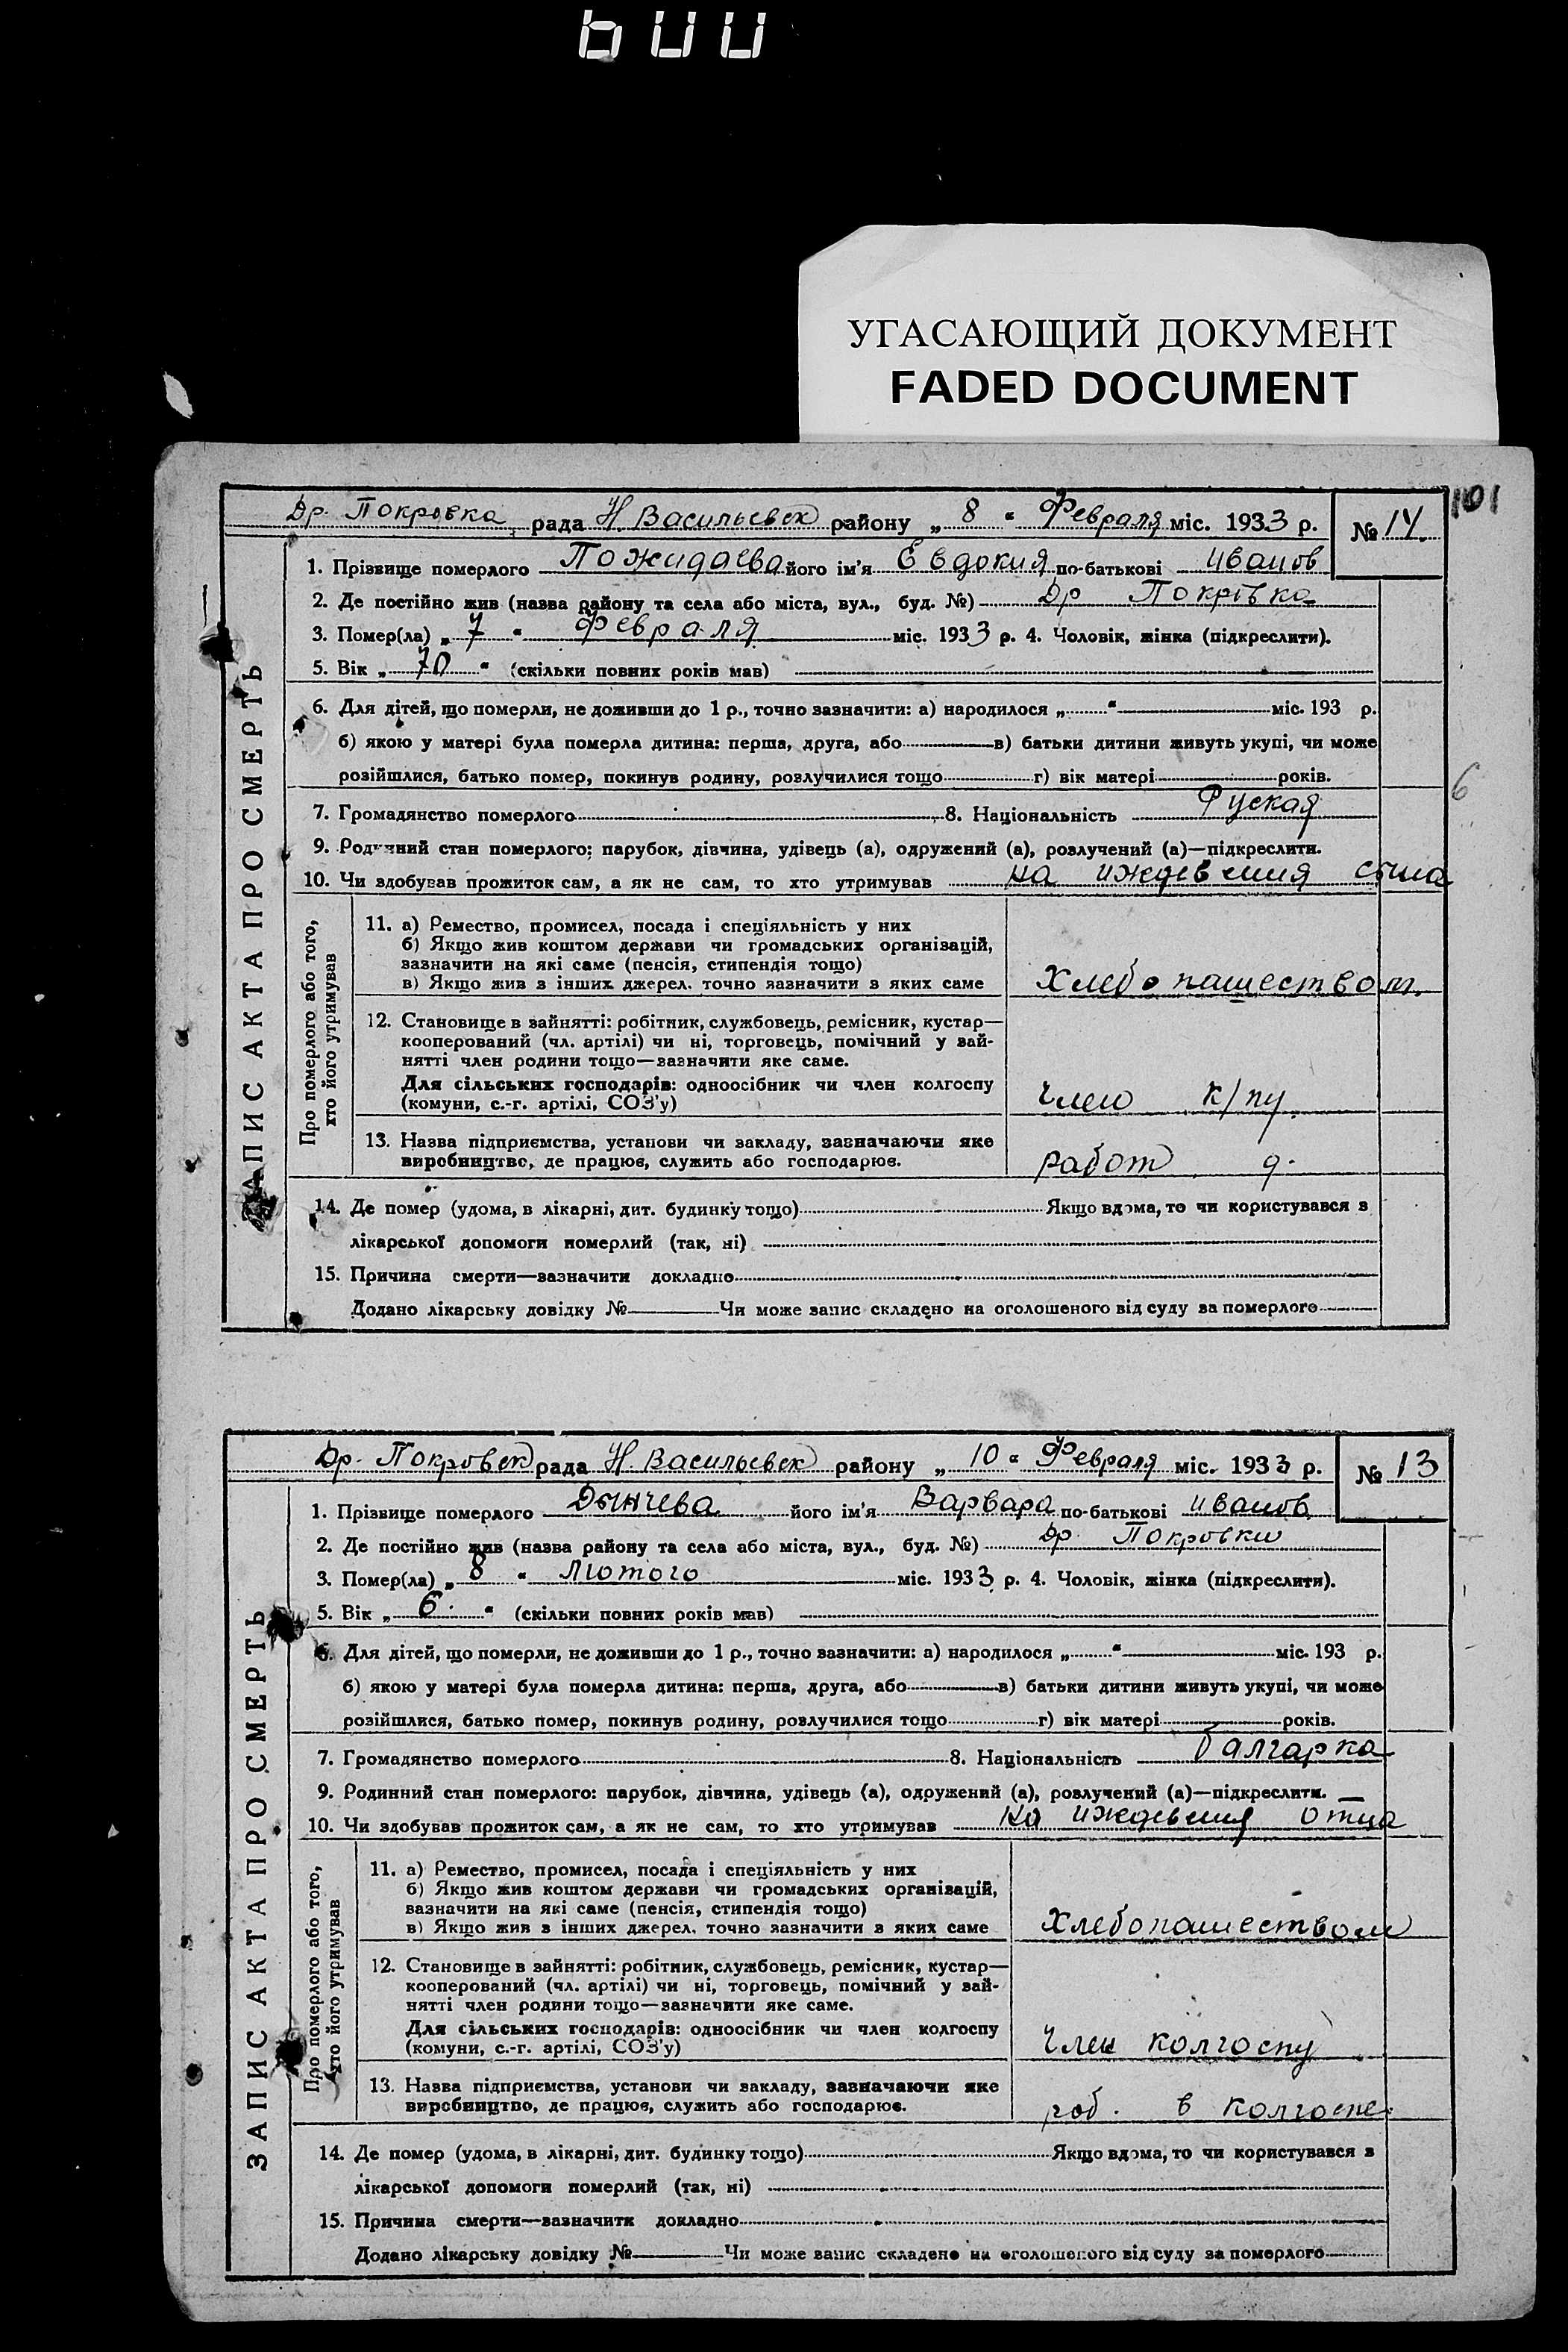 УГАСАЮЩИЙ ДОКУМЕНТ
FADED DOCUMENT
101
ЗАПИС АКТА ПРО СМЕРТЬ
Др. Покровка рада Н. Васильевск району „ 8 “ Февраля міс. 1933 р. № 14.
1. Прізвище померлого Пожидаева його ім'я Евдокия по-батькові Иванов
2. Де постійно жив (назва району та села або міста, вул., буд. №) Др Покрівка
3. Помер(ла) „ 7 “ Февраля міс. 1933 р. 4. Чоловік, жінка (підкреслити).
5. Вік „ 70 “ (скільки повних років мав)
6. Для дітей, що померли, не доживши до 1 р., точно зазначити: а) народилося „ “ міс. 193 р.
б) якою у матері була померла дитина: перша, друга, або в) батьки дитини живуть укупі, чи може
розійшлися, батько помер, покинув родину, розлучилися тощо г) вік матері років.
6
7. Громадянство померлого 8. Національність Руская
9. Родинний стан померлого: парубок, дівчина, удівець (а), одружений (а), розлучений (а)—підкреслити.
10. Чи здобував прожиток сам, а як не сам, то хто утримував на иждевения сына
Про померлого або того,
хто його утримував
11. а) Ремество, промисел, посада і спеціяльність у них
б) Якщо жив коштом держави чи громадських організацій,
зазначити на які саме (пенсія, стипендія тощо)
в) Якщо жив з інших джерел. точно зазначити з яких саме Хлебопашеством.
12. Становище в зайнятті: робітник, службовець, ремісник, кустар—
кооперований (чл. артілі) чи ні, торговець, помічний у зай-
нятті член родини тощо—зазначити яке саме.
Для сільських господарів: одноосібник чи член колгоспу
(комуни, с.-г. артілі, СОЗ'у) член к/пу.
13. Назва підприємства, установи чи закладу, зазначаючи яке
виробництво, де працює, служить або господарює. работ
14. Де помер (удома, в лікарні, дит. будинку тощо) Якщо вдома, то чи користувався з
лікарської допомоги померлий (так, ні)
15. Причина смерти—зазначити докладно
Додано лікарську довідку № Чи може запис складено на оголошеного від суду за померлого
ЗАПИС АКТА ПРО СМЕРТЬ
Др. Покровск рада Н. Васильевск району „ 10 “ Февраля міс. 1933 р. № 13
1. Прізвище померлого Дынчева його ім'я Варвара по-батькові Иванов
2. Де постійно жив (назва району та села або міста, вул., буд. №) Др. Покровки
3. Помер(ла) „ 8 “ лютого міс. 1933 р. 4. Чоловік, жінка (підкреслити).
5. Вік „ 6. “ (скільки повних років мав)
6. Для дітей, що померли, не доживши до 1 р., точно зазначити: а) народилося „ “ міс. 193 р.
б) якою у матері була померла дитина: перша, друга, або в) батьки дитини живуть укупі, чи може
розійшлися, батько помер, покинув родину, розлучилися тощо г) вік матері років.
7. Громадянство померлого 8. Національність балгарка
9. Родинний стан померлого: парубок, дівчина, удівець (а), одружений (а), розлучений (а)—підкреслити.
10. Чи здобував прожиток сам, а як не сам, то хто утримував на иждевения отца
Про померлого або того,
хто його утримував
11. а) Ремество, промисел, посада і спеціяльність у них
б) Якщо жив коштом держави чи громадських організацій,
зазначити на які саме (пенсія, стипендія тощо)
в) Якщо жив з інших джерел. точно зазначити з яких саме Хлебопашеством
12. Становище в зайнятті: робітник, службовець, ремісник, кустар—
кооперований (чл. артілі) чи ні, торговець, помічний у зай-
нятті член родини тощо—зазначити яке саме.
Для сільських господарів: одноосібник чи член колгоспу
(комуни, с.-г. артілі, СОЗ'у) член колгоспу
13. Назва підприємства, установи чи закладу, зазначаючи яке
виробництво, де працює, служить або господарює. роб. в колгоспе.
14. Де помер (удома, в лікарні, дит. будинку тощо) Якщо вдома, то чи користувався з
лікарської допомоги померлий (так, ні)
15. Причина смерти—зазначити докладно
Додано лікарську довідку № Чи може запис складено на оголошеного від суду за померлого